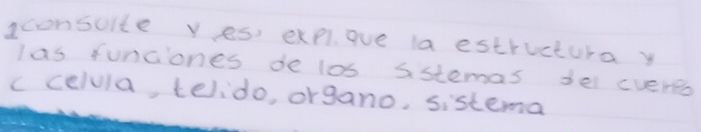 1consulte y es, expl.que la estructura y
las funciones de los sistemas del cuerpo
c celula, tejido, organo, sistema